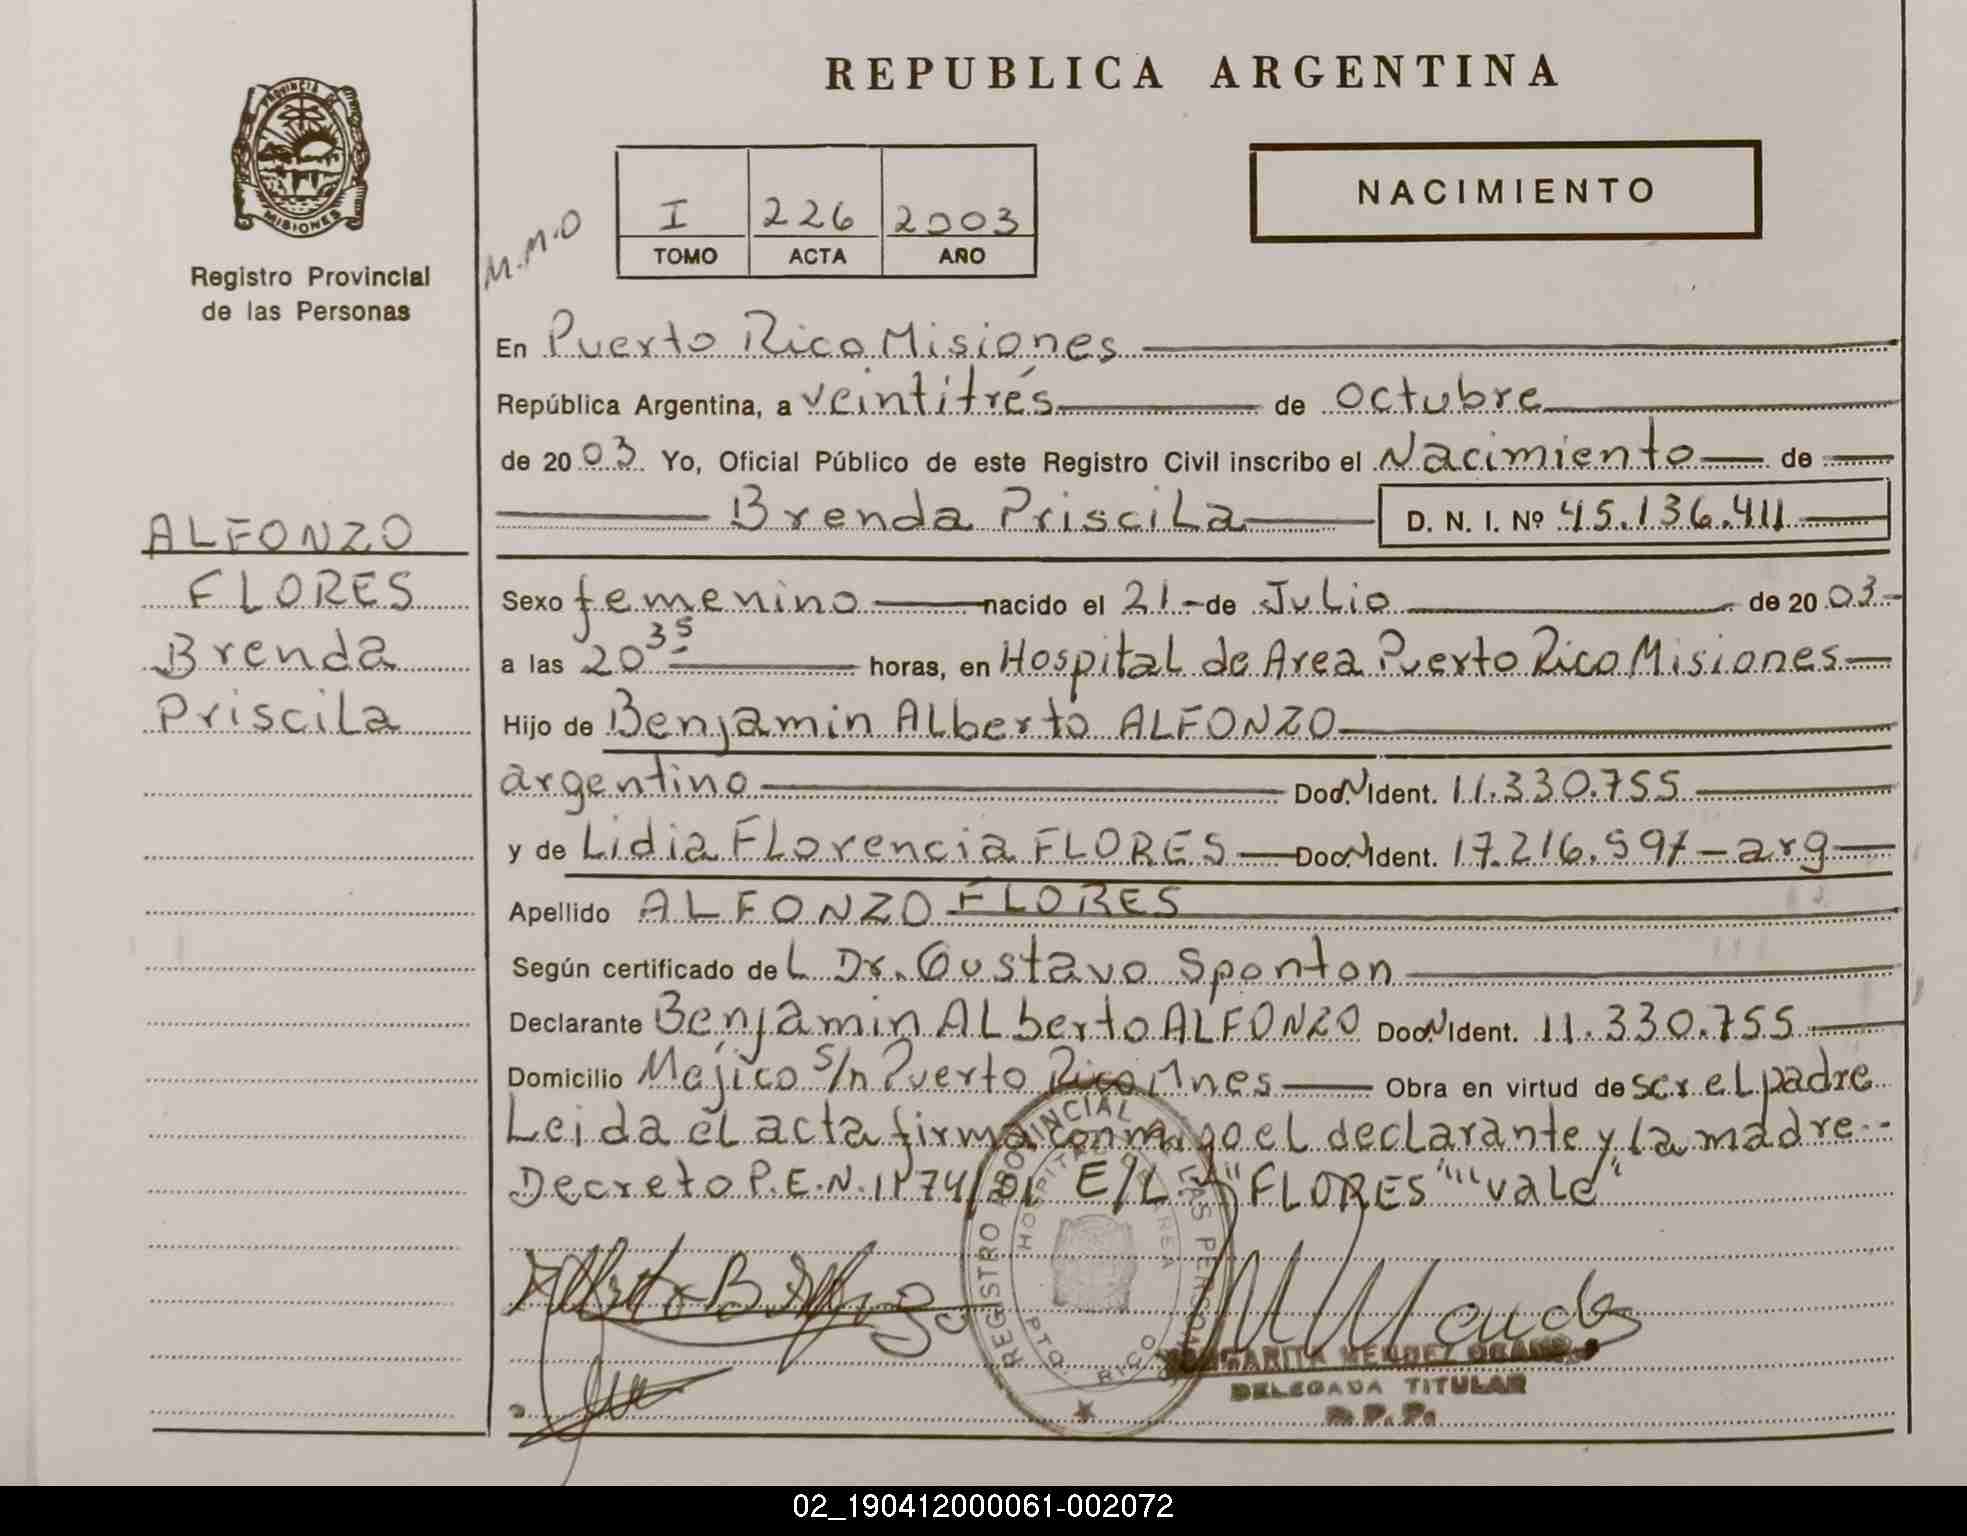 REPUBLICA ARGENTINA
PROVINCIA DE MISIONES
Registro Provincial
de las Personas
M.M.O
I 226 2003
TOMO ACTA AÑO
NACIMIENTO
En Puerto Rico Misiones
República Argentina, a veintitrés de octubre
de 2003 Yo, Oficial Público de este Registro Civil inscribo el Nacimiento de
Brenda Priscila D. N. I. Nº 45.136.411
ALFONZO
FLORES
Brenda
Priscila
Sexo femenino nacido el 21 - de Julio de 2003
a las 20 35 horas, en Hospital de Area Puerto Rico Misiones
Hijo de Benjamin Alberto ALFONZO
argentino Doc. N Ident. 11.330.755
y de Lidia Florencia FLORES Doc. N Ident. 17.216.597 - arg
Apellido ALFONZO FLORES
Según certificado del Dr. Gustavo Sponton
Declarante Benjamin Alberto ALFONZO Doc. N Ident. 11.330.755
Domicilio Mejico s/n Puerto Rico Mnes Obra en virtud de ser el padre
Leida el acta firma conmigo el declarante y la madre
Decreto P.E.N. E/L "FLORES" "vale"
REGISTRO PROVINCIAL DE LAS PERSONAS
HOSPITAL DE AREA
PTO. RICO
MARGARITA MENDEZ
DELEGADA TITULAR
R.P.P.
02_190412000061-002072